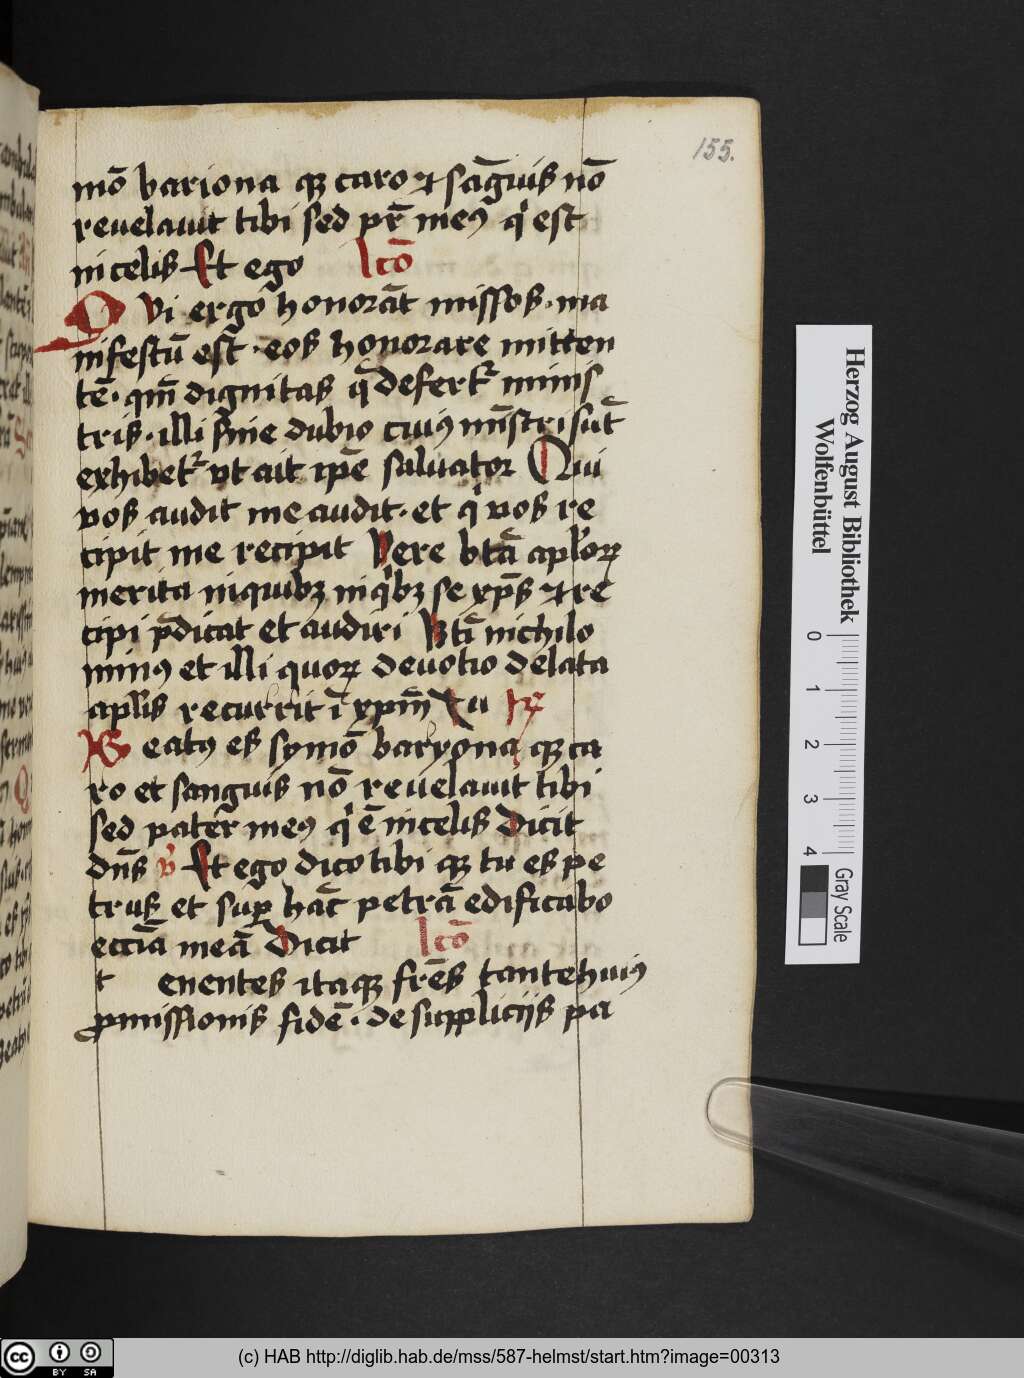 155.
mō bariona qꝫ caro ⁊ sāgwis nō
reuelauit tibi sed pr̄ meꝰ qͥ est
in celis Et ego Lcō
Qvi ergo honorāt missos · ma
nifestū est̄ · eos honorare mitten
tē · qm̄ dignitas q̄ defertᷣ minis
tris · illi sine dubio cuiꝰ mīstri sūt
exhibetᷣ vt ait ipē saluator Qui
vos audit me audit · et qͥ vos re
cipit me recipit Vere btā aplorꝝ
merita in quibꝫ in qͥbꝫ se xp̄s ⁊ re
cipi p̄dicat et audiri Btī nichilo
minꝰ et illi quorꝝ deuotio delata
aplis recurrit ī xpm̄ Tu R̄
Beatꝰ es symō baryona qꝫ ca
ro et sangwis nō reuelauit tibi
sed pater meꝰ qͥ ē in celis Dicit
dn̄s v̄ Et ego dico tibi qꝫ tu es pe
trus et suꝑ hāc petrā edificabo
ecciā meā Dicit Lcō
t enentes itaqꝫ frēs tante huiꝰ
ꝓmissionis fidē · de suppliciis pa
Herzog August Bibliothek
Wolfenbüttel
0 1 2 3 4
Gray Scale
cc BY SA
(c) HAB http://diglib.hab.de/mss/587-helmst/start.htm?image=00313